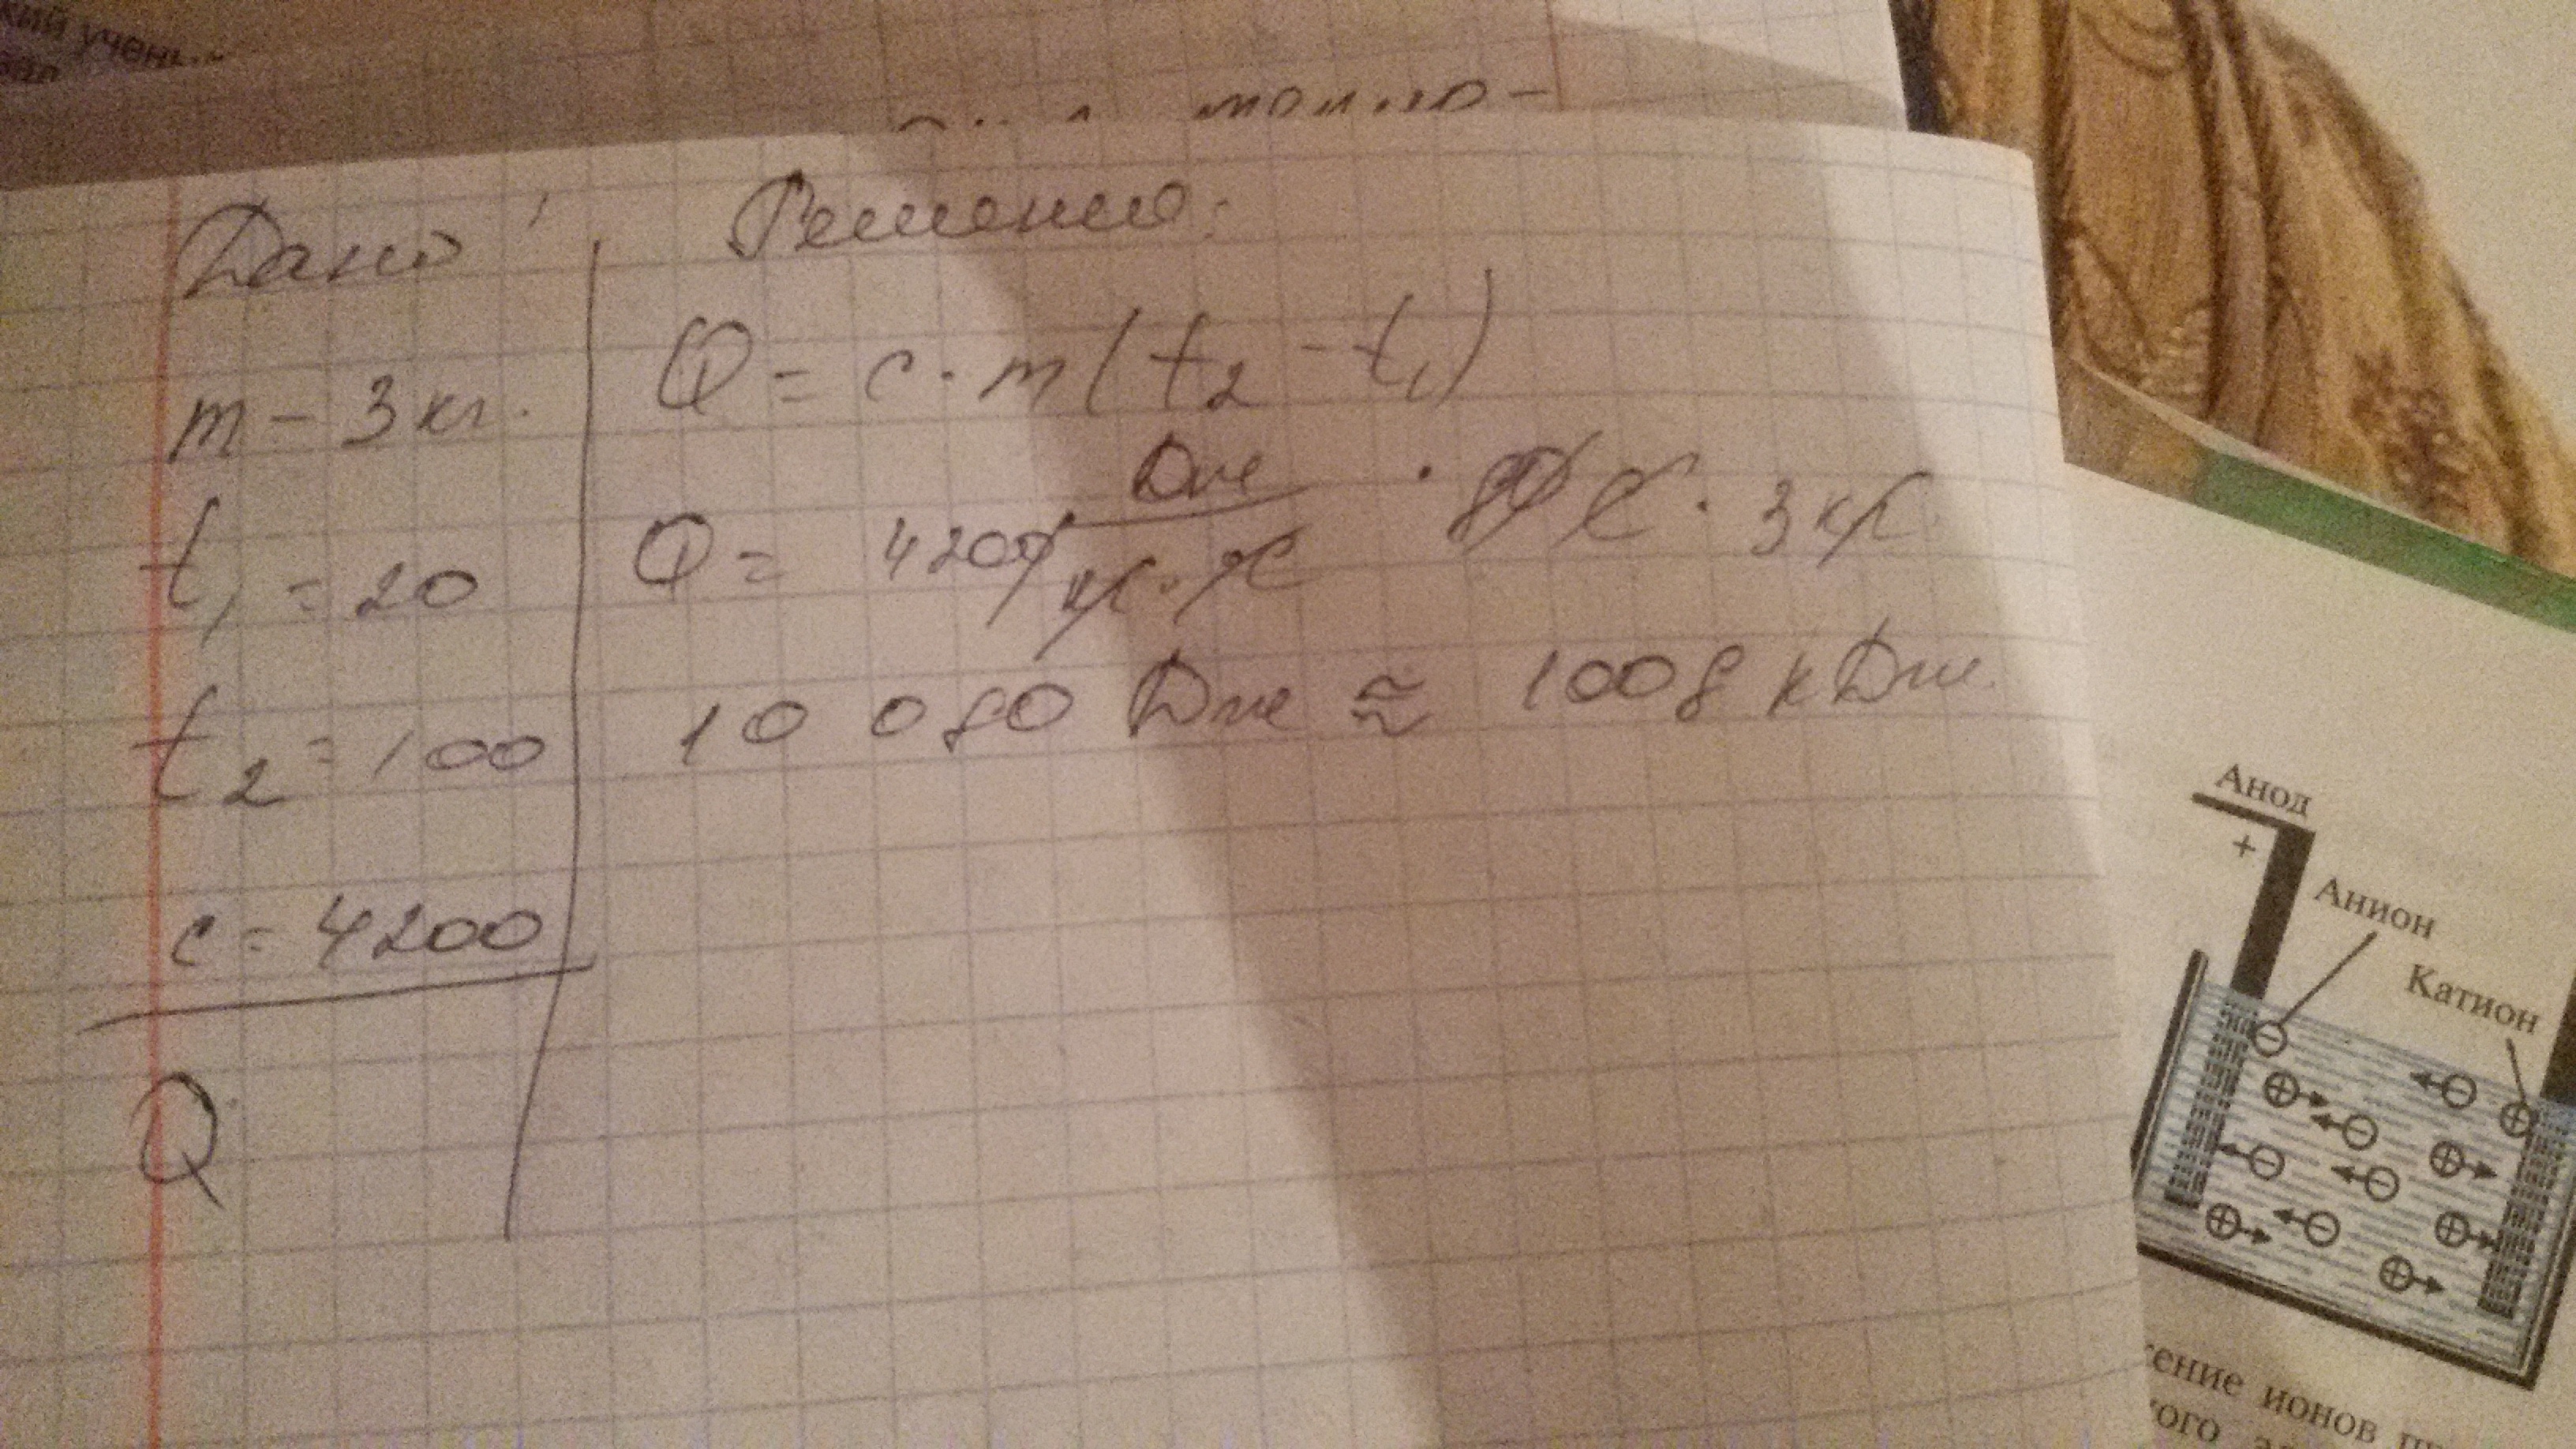 кий учень
Дано
m - 3 кг.
t₁ = 20
t₂ = 100
c = 4200
Q
Решение:
Q = c · m (t₂ - t₁)
Q = 4200 Дж/кг·°C · 80 °C · 3 кг
10 080 Дж ≈ 1008 кДж
Анод
+
Анион
Катион
ение ионов
ого